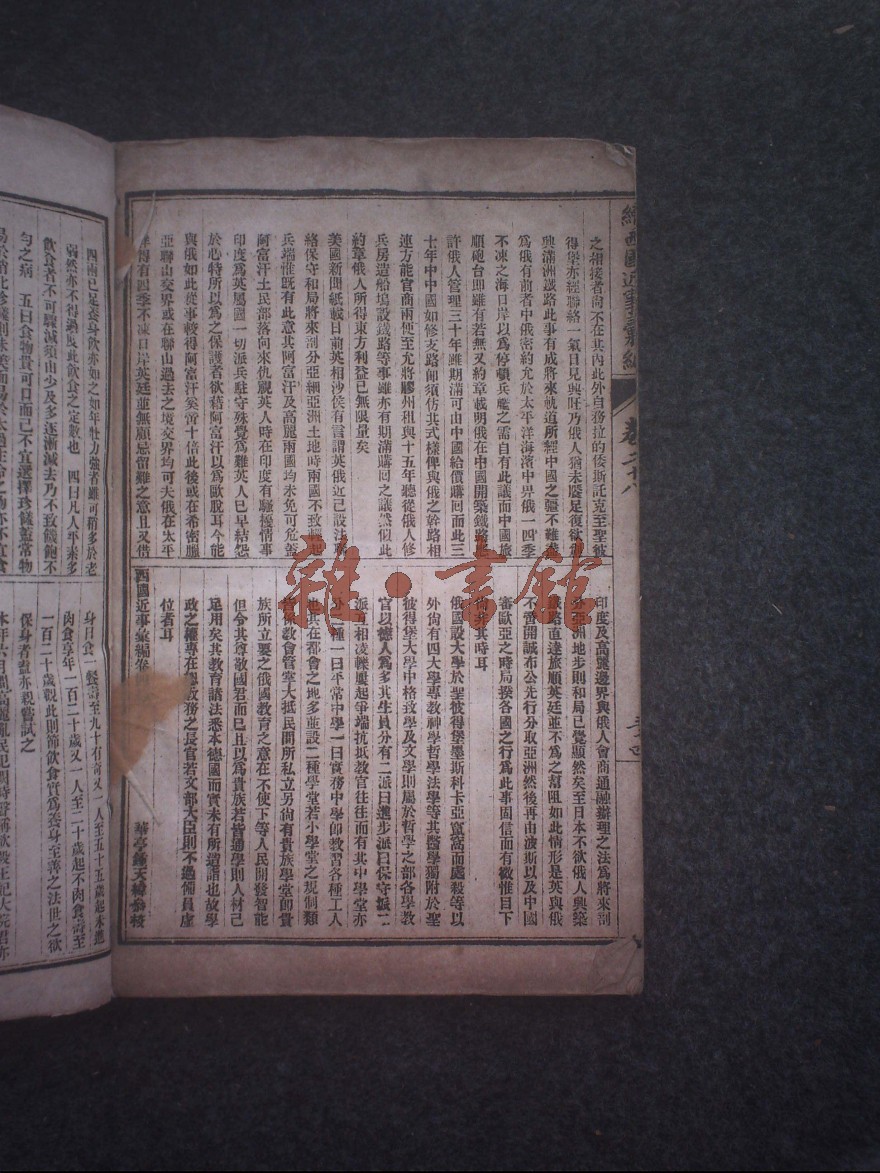 續西國近事彙編
卷二十八
之相接者尙不在其內此外自務拉的倭斯託克至聖彼
得堡亦經聯絡一氣日見興旺乃俄人猶未饜足復欲
興滿洲鐵路此事有成將來軌道所經中國之疆不難盡
爲俄有前者中俄密約允於太平洋海濱中畀俄一四季
不凍之海口岸以爲停頓兵艦之需自有此議而中國旅
順砲台卽雖有若無又約章載明俄在中國開築鐵路
許俄人管理三十年雖期滿可由中國給價購回而此三
十年中中國如修支路卽須仿其式樣俾與俄之幹路相
連方能官商兩便至允將膠州租與十五年聽從俄人修
兵房造船塢設鐵路等事雖亦有期滿購回之議然似此
約章俄人所得東方利益已無限量矣
美國新聞紙載日前英相沙侯有言謂英俄近已設法
絡保守和局將來剖分亞細亞洲土地時兩國不致輕起
兵端惟旣有此意其阿富汗及高麗兩國均未免可危蓋
阿富汗土民部落向來仇視英人時在印度有騷擾情事
印度爲英屬國一切派兵駐守殊覺爲難英人已早結怨
於心特所以爲之保護者欲藉阿富汗以爲歐脫耳今能
與俄如此從事較得阿富汗矣啻十倍此後或在希密臘
亞聯山交界或在聯山過去之境交界均可夫俄在太平
洋得有四季不凍口岸英廷並無顧忌留難之意且又借
印度及高麗邊界與俄人會商通融辦理之法爲將來剖
分亞洲地步則和局已覺顯然矣至日本不欲俄人興築
鐵路直達旅順英廷並不爲之幫阻如此情形是英與俄
不啻開誠布公先行分取亞洲然後再由波斯以及中國
審歐亞之時局揆各國之行爲此事固信而有徵惟目下
尙非其時耳
俄國設大學於聖彼得堡墨斯科卡亞齍窩而處殺等以
外尙有四大學專教神學哲學法學等其醫學獨附於聖
彼得堡大學中格致學及文學則屬於哲學之部各學教
官以德人爲多其生員分有二派曰進步派曰保守派二
派互相凌轢屢起爭端抗抵教官往往而有其中學堂亦
分二種一曰平常中學一曰實務中學卽教習各種工人
也其在都會之地多並設二種學堂若小學堂之規制類
皆係教會管室大抵民間所私立另尙有貴族學堂卽貴
族所立要之俄國教育之意在不使下等人民開發智能
但令其尊敬國君而已且以爲貴族若皆通學則人材已
足用矣其教育諸法悉本德國而實未有所造詣也故學
政之權專在總教務之長官若文部大臣則不過備員虛
位者耳
西國近事彙編卷
華亭鍾天緯
四兩已足養身飲亦如之如年壯力強者雖可稍多於老
弱然亦不得過度此飲食之定數也　四曰凡人平素多
飲食者不可驟減須由少及多逐漸減去乃不致饑飽不
勻之病　五曰食物貴可口而已不宜選擇珍饈蓋常物
身日食一餐壽至九十有奇又一人至五十五歲起未進
肉食享年一百二十歲又一人至二十歲起不肉食壽至
一百二十歲觀此則節飲食實爲養身至善之法世之欲
保身者盍亦嘗試之
雜·書館